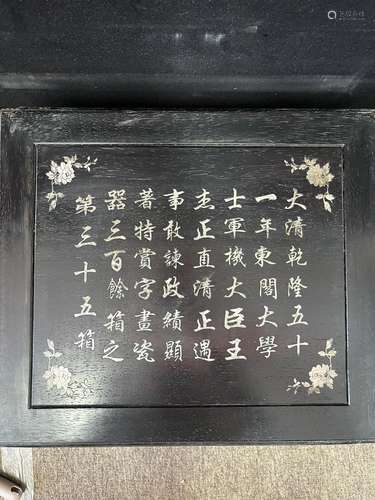 大清乾隆五十
一年東閣大學
士軍機大臣王
杰正直清正遇
事敢諫政績顯
著特賞字畫瓷
器三百餘箱之
第三十五箱